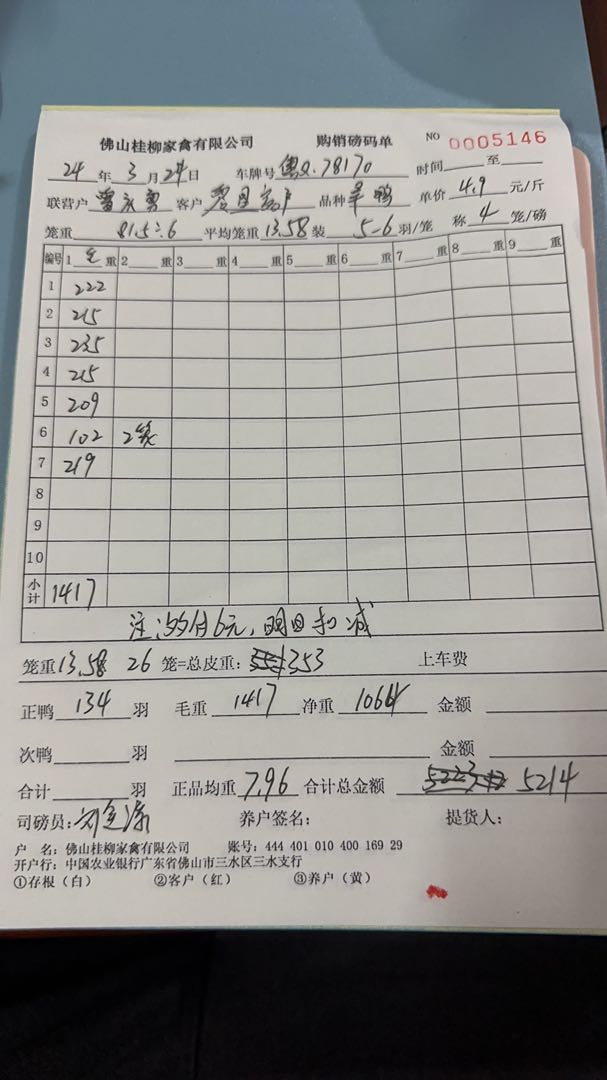 佛山桂柳家禽有限公司 购销磅码单 NO 0005146
24 年 3 月 24 日 车牌号 粤Q.78170 时间 至
联营户 客户 品种 鸭 单价 4.9 元/斤
笼重 81.5÷6 平均笼重 13.58 装 5-6 羽/笼 称 4 笼/磅
编号 1 重 2 重 3 重 4 重 5 重 6 重 7 重 8 重 9 重
1 222
2 215
3 235
4 215
5 209
6 102 2笼
7 219
8
9
10
小计 1417
注: 6元,明日扣减
笼重 13.58 26 笼=总皮重: 353 上车费
正鸭 134 羽 毛重 1417 净重 1064 金额
次鸭 羽 金额
合计 羽 正品均重 7.96 合计总金额 5214
司磅员: 养户签名: 提货人:
户 名:佛山桂柳家禽有限公司 账号:444 401 010 400 169 29
开户行:中国农业银行广东省佛山市三水区三水支行
①存根(白) ②客户(红) ③养户(黄)